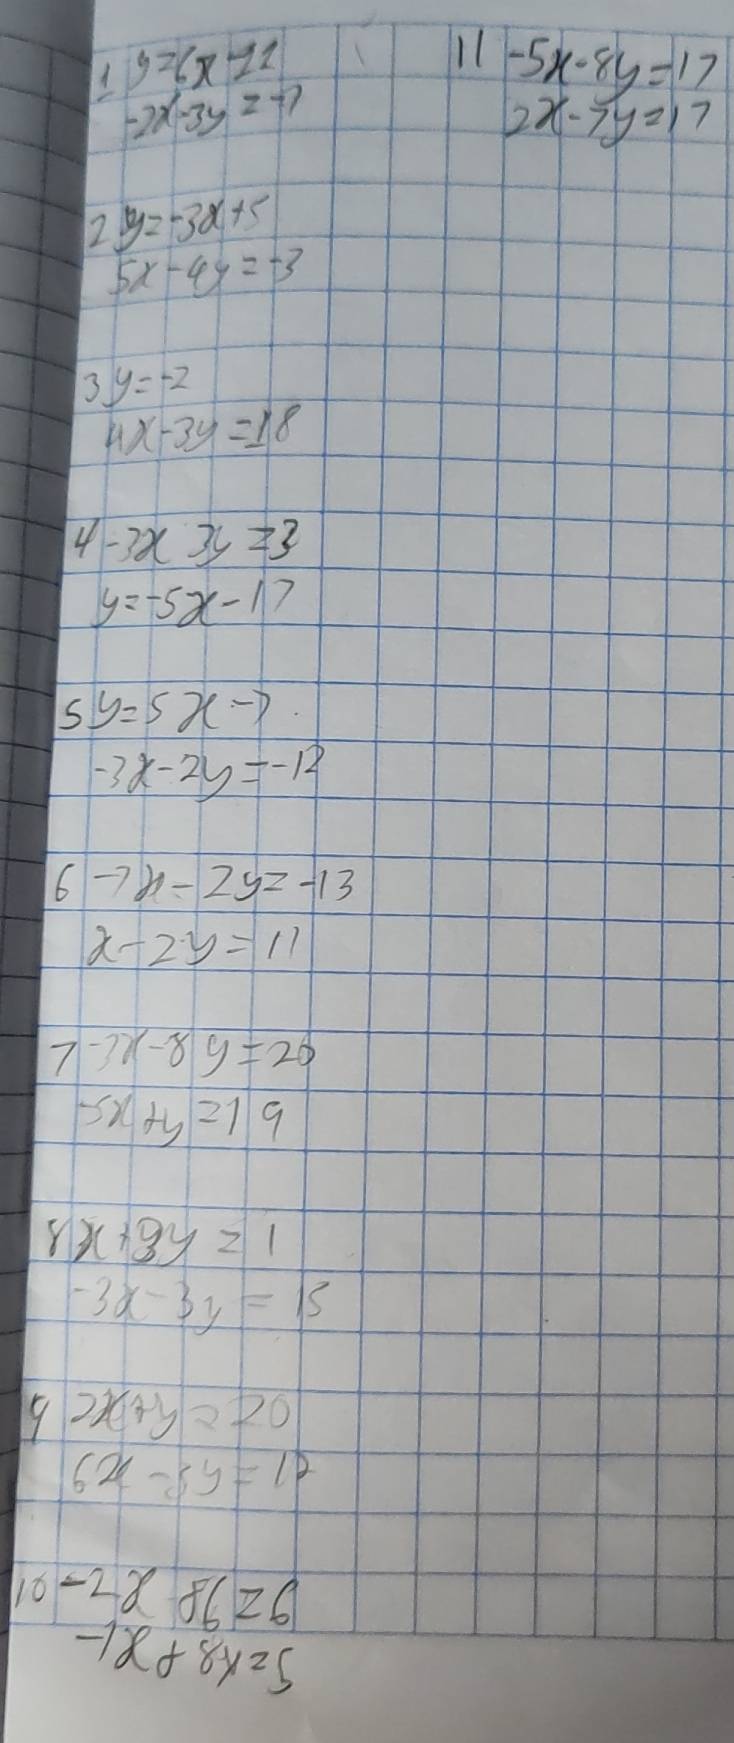 1 y=6x-11
-2x-3y=-7
2 y=-3x+5
5x-4y=-3
3 y=-2
4x-3y=18
4 -3x 3y=3
y=-5x-17
5 y=5x-7
-3x-2y=-12
6 -7x-2y=-13
x-2y=11
7 -3x-8y=20
-5x+y=19
8 x+3y=1
-3x-3y=15
9 2x+y=20
6x-3y=12
10 -2x 86=6
-1x+8x=5
11 -5x-8y=17
2x-7y=17